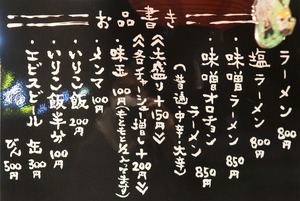 お品書き
塩ラーメン 800円
・味噌ラーメン 850円
・味噌オロチョンラーメン 850円
(普通・中辛・大辛)
≪大盛り+150円≫
≪各チャーシュー増し+200円≫
・味玉 100円
・メンマ 100円
・いりこ飯 200円
・いりこ飯半分 100円
・エビスビール 缶 300円
びん 500円